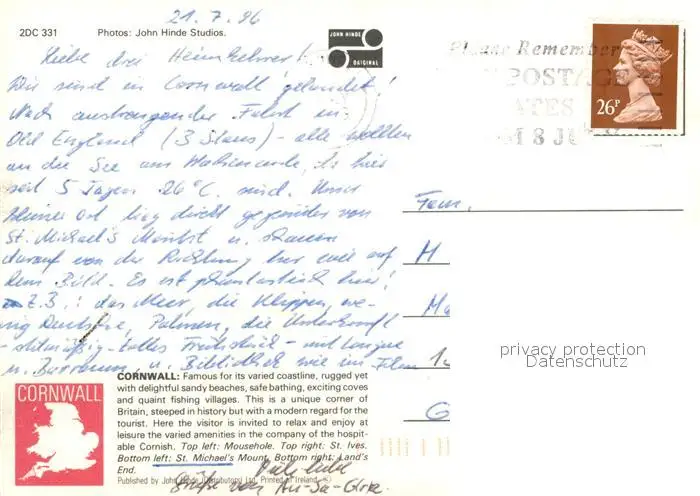 21.7.96
2DC 331 Photos: John Hinde Studios.
JOHN HINDE
ORIGINAL
Please Remember
POSTAGE
26P
Liebe drei Heimkehrer!
Wir sind in Cornwall gelandet!
Nach anstrengender Fahrt in
Old England (3 Staus) - alle wollten
an die See am Wochenende, da hier
seit 5 Tagen 26°C sind. Unser
kleiner Ort liegt direkt gegenüber von
St. Michael's Mount u. schauen
darauf von der Richtung her wie auf
dem Bild. Es ist phantastisch hier!
Z.B.: das Meer, die Klippen, we-
nig Deutsche, Palmen, die Unterkunft
- tolles Frühstück - mit Lounge
u. Barraum u. Bibliothek wie im Film
Fam.
H
M
1
G
CORNWALL
CORNWALL: Famous for its varied coastline, rugged yet
with delightful sandy beaches, safe bathing, exciting coves
and quaint fishing villages. This is a unique corner of
Britain, steeped in history but with a modern regard for the
tourist. Here the visitor is invited to relax and enjoy at
leisure the varied amenities in the company of the hospit-
able Cornish. Top left: Mousehole. Top right: St. Ives.
Bottom left: St. Michael's Mount. Bottom right: Land's
End.
Published by John Hinde (Distributors) Ltd. Printed in Ireland.
Viele liebe
Grüße von
privacy protection
Datenschutz